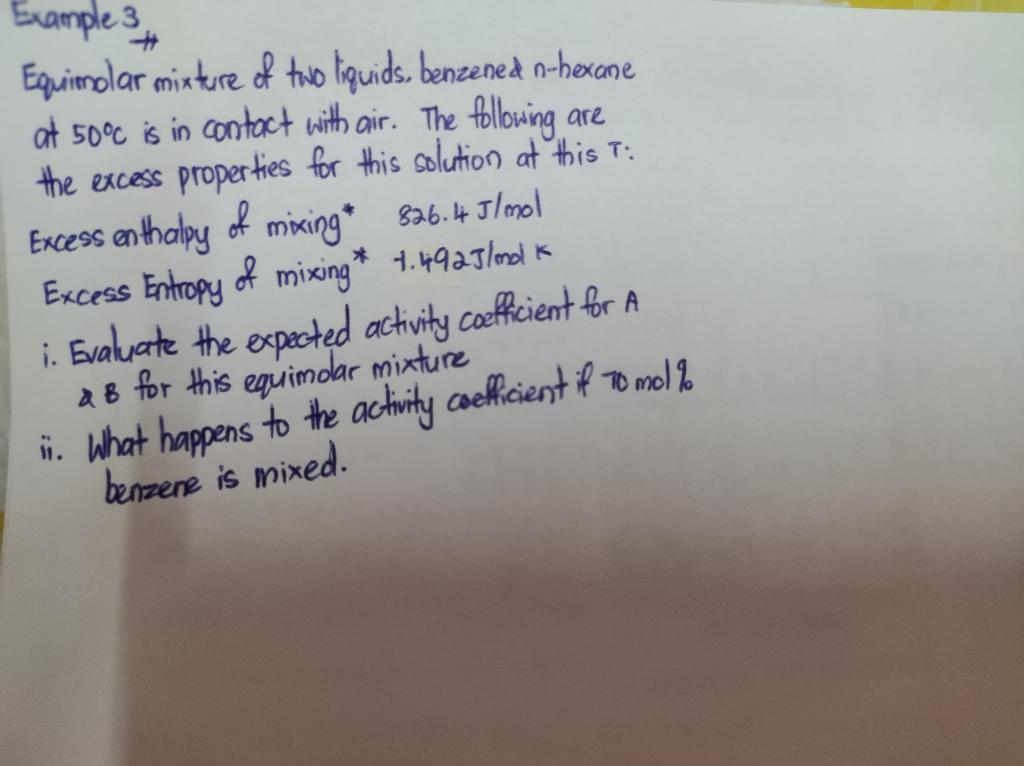 Example 3
Equimolar mixture of two liquids. benzene & n-hexane
at 50°C is in contact with air. The following are
the excess properties for this solution at this T:
Excess enthalpy of mixing* 826.4 J/mol
Excess Entropy of mixing* 1.492J/mol K
i. Evaluate the expected activity coefficient for A
& B for this equimolar mixture
ii. What happens to the activity coefficient if 70 mol%
benzene is mixed.